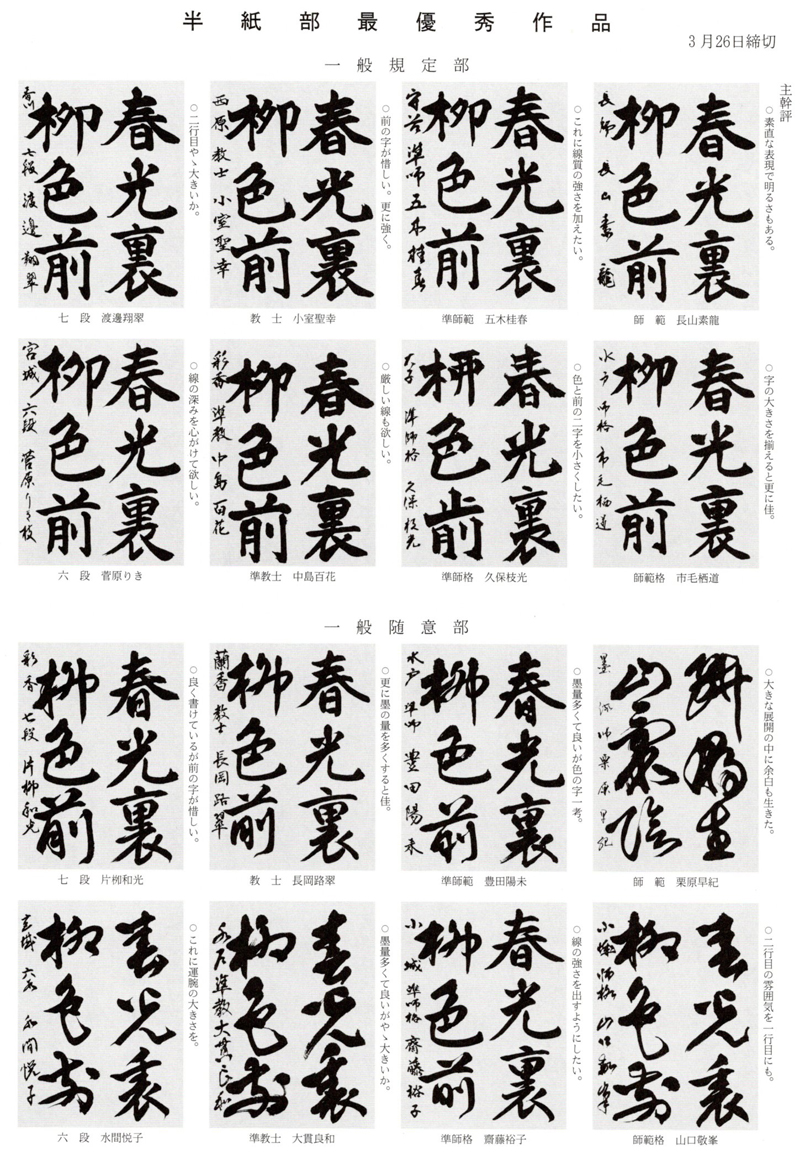 半紙部最優秀作品
3月26日締切
一般規定部
主幹評
○素直な表現で明るさもある。
春光裏
柳色前
師範 長山素龍
○これに線質の強さを加えたい。
春光裏
柳色前
準師範 五木桂春
○前の字が惜しい。更に強く。
春光裏
柳色前
西原 教士 小室聖幸
教士 小室聖幸
○二行目やゝ大きいか。
春光裏
柳色前
香川 七段 渡邊翔翠
七段 渡邊翔翠
○字の大きさを揃えると更に佳。
春光裏
柳色前
水戸 師格 市毛栖道
師範格 市毛栖道
○色と前の二字を小さくしたい。
春光裏
柳色前
大子 準師格 久保枝光
準師格 久保枝光
○厳しい線も欲しい。
春光裏
柳色前
彩香 準教 中島百花
準教士 中島百花
○線の深みを心がけて欲しい。
春光裏
柳色前
宮城 六段 菅原りき
六段 菅原りき
一般随意部
○大きな展開の中に余白も生きた。
師範 栗原早紀
○墨量多くて良いが色の字一考。
春光裏
柳色前
水戸 準師 豊田陽未
準師範 豊田陽未
○更に墨の量を多くすると佳。
春光裏
柳色前
蘭香 教士 長岡路翠
教士 長岡路翠
○良く書けているが前の字が惜しい。
春光裏
柳色前
彩香 七段 片柳和光
七段 片栁和光
○二行目の雰囲気を一行目にも。
春光裏
柳色前
師範格 山口敬峯
○線の強さを出すようにしたい。
春光裏
柳色前
小城 準師格 齋藤裕子
準師格 齋藤裕子
○墨量多くて良いがやゝ大きいか。
春光裏
柳色前
準教士 大貫良和
○これに運腕の大きさを。
春光裏
柳色前
六段 水間悦子